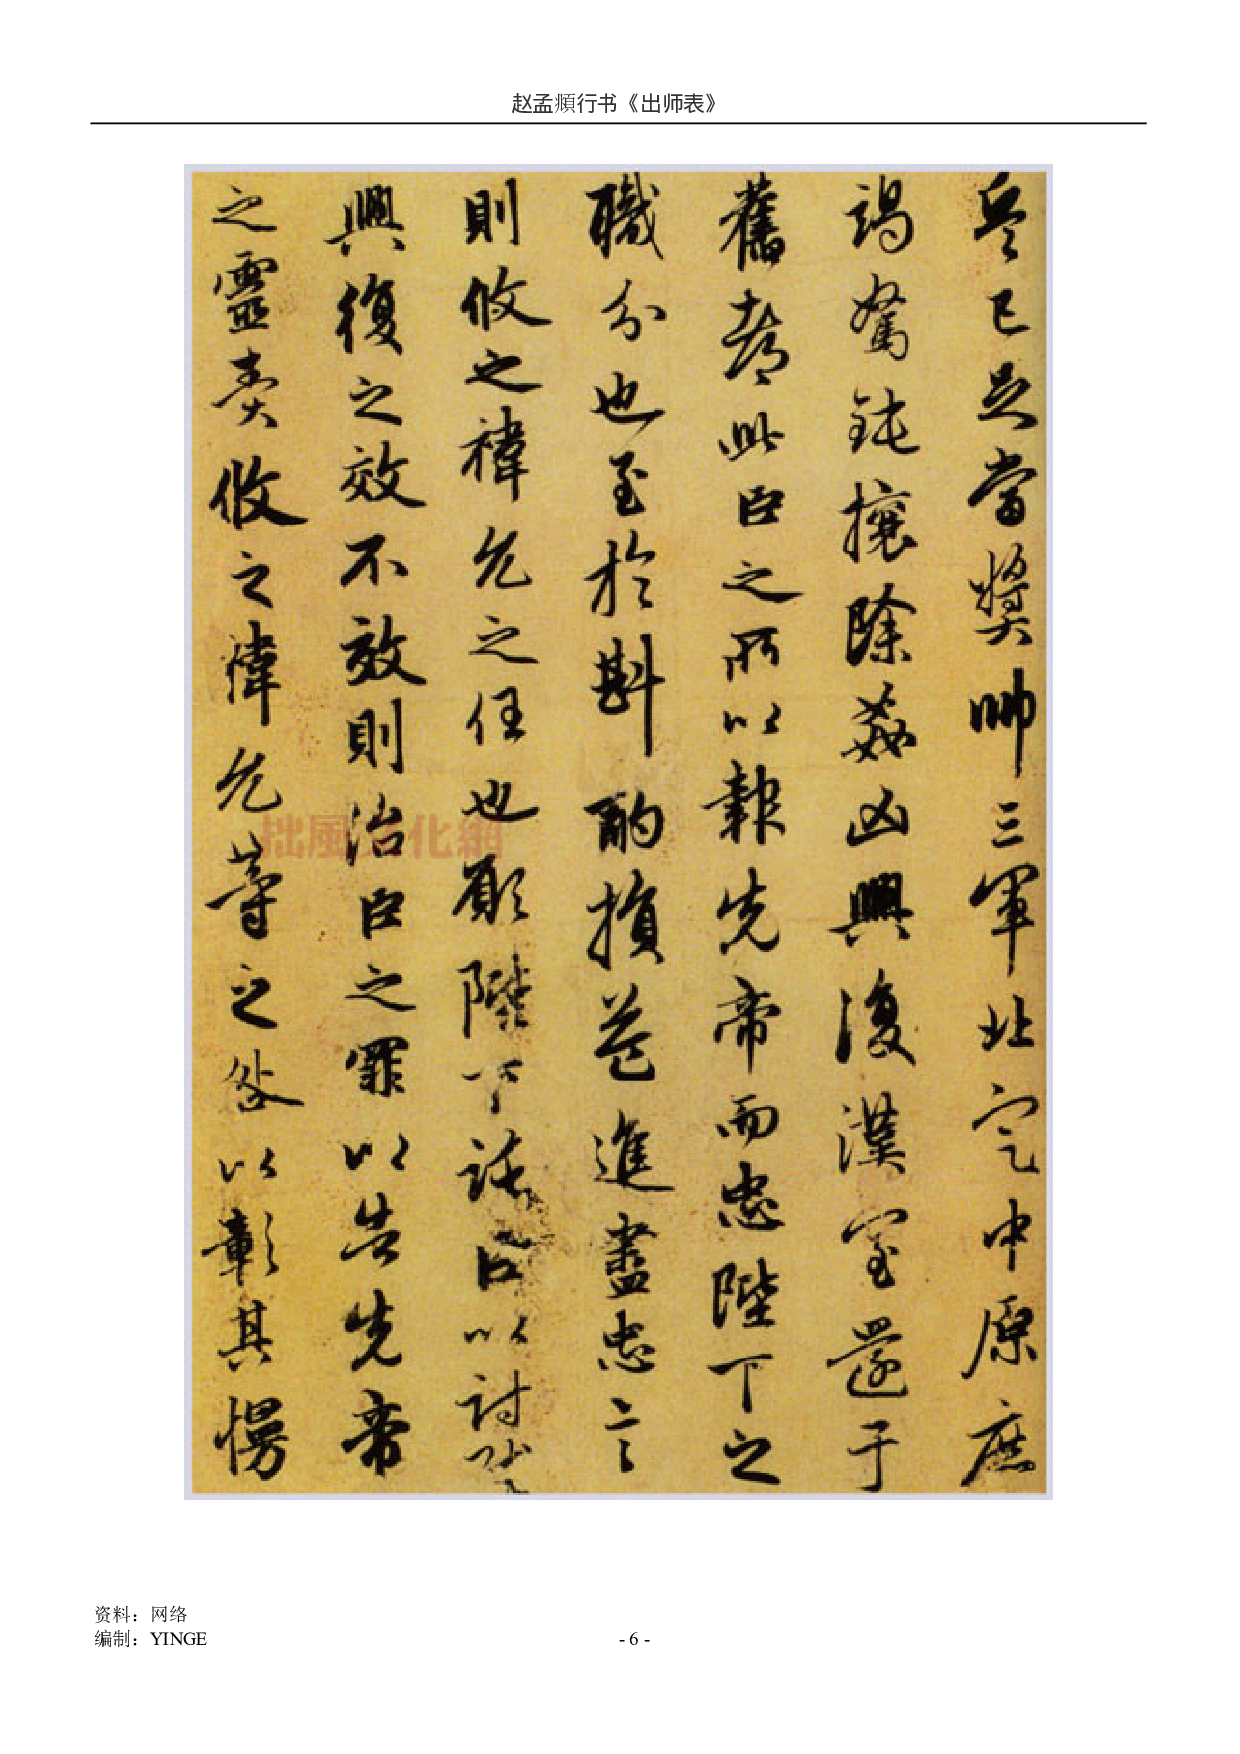 赵孟頫行书《出师表》
兵已足當獎帥三軍北定中原庶
竭駑鈍攘除姦凶興復漢室還于
舊都此臣之所以報先帝而忠陛下之
職分也至於斟酌損益進盡忠言
則攸之禕允之任也願陛下託臣以討賊
興復之效不效則治臣之罪以告先帝
之靈責攸之禕允等之咎以彰其慢
拙風文化網
资料：网络
编制：YINGE
- 6 -